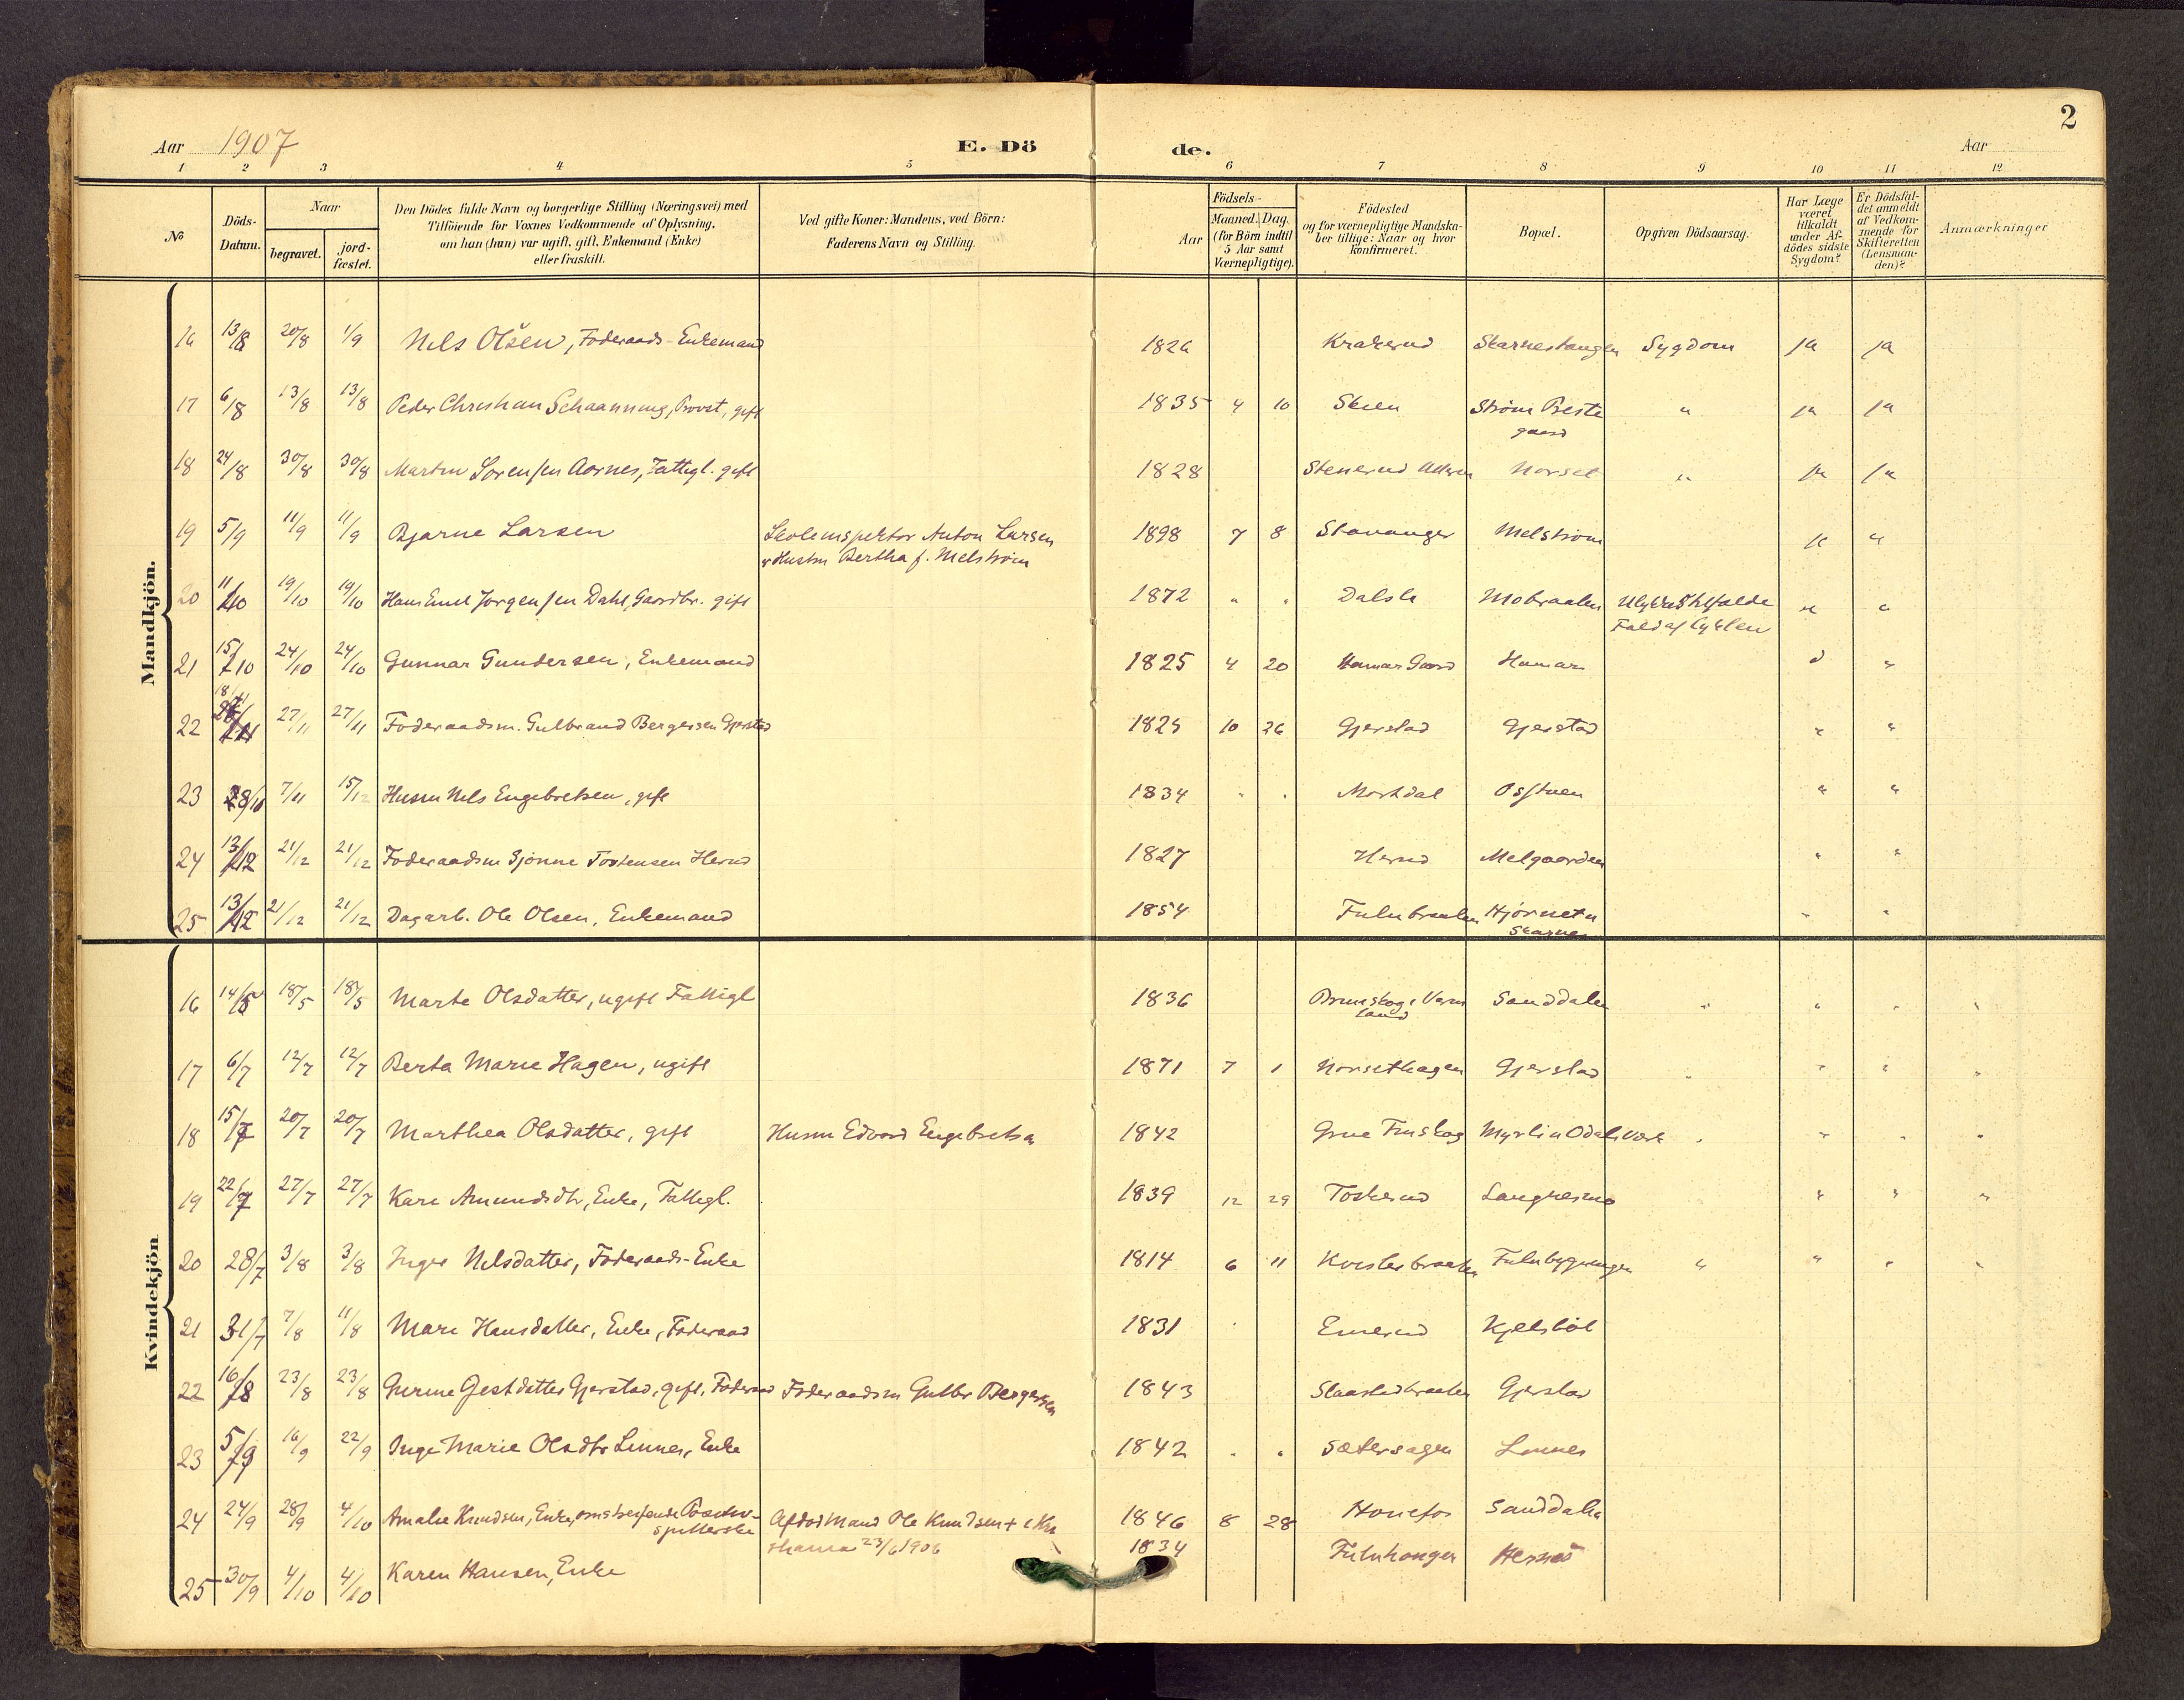 2
Aar 1907 E. Dö de. Aar
1 2 3 4 5 6 7 8 9 10 11 12
№
Döds-Datum.
Naar
begravet.
jord-fæstet.
Den Dödes fulde Navn og borgerlige Stilling (Næringsvei) med
Tilföiende for Voxnes Vedkommende af Oplysning,
om han (hun) var ugift, gift, Enkemand (Enke)
eller fraskilt.
Ved gifte Koner: Mandens, ved Börn:
Faderens Navn og Stilling.
Födsels-
Aar
Maaned. Dag.
(for Börn indtil
5 Aar samt
Værnepligtige).
Födested
og for værnepligtige Mandska-
ber tillige: Naar og hvor
konfirmeret.
Bopæl.
Opgiven Dödsaarsag.
Har Læge
været
tilkaldt
under Af-
dödes sidste
Sygdom?
Er Dödsfal-
det anmeldt
af Vedkom-
mende for
Skifteretten
(Lensman-
den)?
Anmærkninger
Mandkjön.
16 13/8 20/8 1/9 Nels Olsen, Foderaads-Enkemand 1826 Krakerud Skarnestangen Sygdom ja ja
17 6/8 13/8 13/8 Peder Christian Schaanning, Provst, gift 1835 4 10 Skien Ström Preste " ja ja
gaard
18 24/8 30/8 30/8 Martin Sörensen Aarnes, Fattigl. gift 1828 Stenerud Norset " ja ja
19 5/9 11/9 11/9 Bjarne Larsen Skoleinspektør Anton Larsen 1898 7 8 Stavanger Melström " "
& Hustru Bertha f. Melström
20 11/10 19/10 19/10 Hans Emil Jörgensen Dahl, Gaardbr. gift 1872 " " Dalsle Mobraaten Ulykkestilfælde " "
Fald af Cyklen
21 15/10 24/10 24/10 Gunnar Gundersen, Enkemand 1825 4 20 Hamar Gaard Hamar "
22 27/11 27/11 Foderaadsm. Gulbrand Bergersen Gjerstad 1825 10 26 Gjerstad Gjerstad " "
23 28/10 7/11 15/12 Husm Nils Engebretsen, gift 1834 " " Morkdal " "
24 13/12 21/12 21/12 Foderaadsm Gjönne Tostensen Herud 1827 Herud Melgaarden " "
25 13/12 21/12 21/12 Dagarb. Ole Olsen, Enkemand 1854 Fulubraaten Hjörnet " "
Skarnes
Kvindekjön
16 14/5 18/5 18/5 Marte Olsdatter, ugift Fattigl 1836 Brunskog i Verm Sanddalen " " " "
land
17 6/7 12/7 12/7 Berta Marie Hagen, ugift 1871 7 1 Norsethagen Gjerstad " " " "
18 15/7 20/7 20/7 Marthea Olsdatter, gift Husm Edvard Engebretsen 1842 Grue Finskog Myrlia Odals Værk " " " "
19 22/7 27/7 27/7 Kari Amundsdtr, Enke, Fattigl. 1839 12 29 Toskerud Langnesmo " " "
20 28/7 3/8 3/8 Inger Nilsdatter, Foderaads-Enke 1814 6 11 Kvislerbraaten Fulubygningen " " " "
21 31/7 7/8 11/8 Mari Hansdatter, Enke, Foderaad 1831 Emerud Kjelsböl
22 16/8 23/8 23/8 Gurine Gestdatter Gjerstad, gift, Foderaad Foderaadsm Gulbr Bergersen 1843 Slaastadbraaten Gjerstad
23 5/9 16/9 22/9 Inge Marie Olsdtr Linnes, Enke 1842 " " Sætersagen Linnes
24 24/9 28/9 4/10 Amalie Knudsen, Enke, Afdöd Mand Ole Knudsen + i Kri 1846 8 28 Hönefos Sanddalen
stiania 23/6 1906
25 30/9 4/10 4/10 Karen Hansen, Enke 1834 Fuluhaugen Hernes